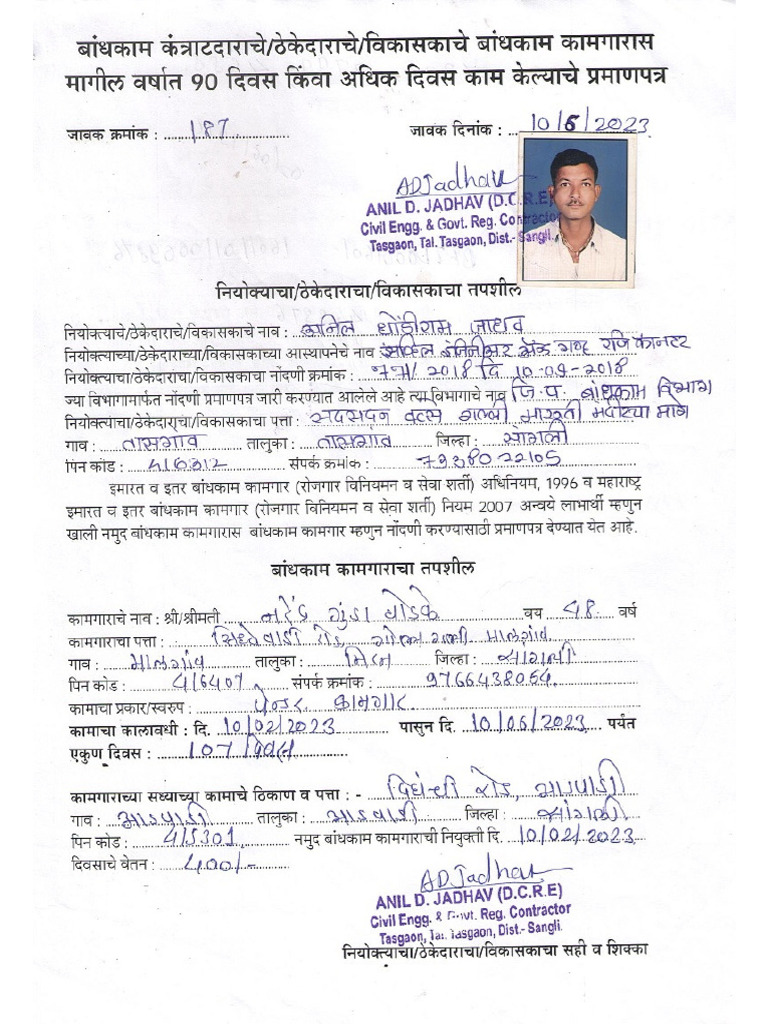 बांधकाम कंत्राटदाराचे/ठेकेदाराचे/विकासकाचे बांधकाम कामगारास
मागील वर्षात 90 दिवस किंवा अधिक दिवस काम केल्याचे प्रमाणपत्र
जावक क्रमांक : 187 जावक दिनांक : 10/6/2023
ADJadhav
ANIL D. JADHAV (D.C.R.E)
Civil Engg. & Govt. Reg. Contractor
Tasgaon, Tal. Tasgaon, Dist.- Sangli.
नियोक्याचा/ठेकेदाराचा/विकासकाचा तपशील
नियोक्याचे/ठेकेदाराचे/विकासकाचे नाव : अनिल धोंडीराम जाधव
नियोक्याच्या/ठेकेदाराच्या/विकासकाच्या आस्थापनेचे नाव सिव्हिल इंजिनीअर अँन्ड गव्ह रजि कॉनटर
नियोक्याचा/ठेकेदाराचा/विकासकाचा नोंदणी क्रमांक : 2018 दि 10-09-2018
ज्या विभागामार्फत नोंदणी प्रमाणपत्र जारी करण्यात आलेले आहे त्या विभागाचे नाव जि.प. बांधकाम विभाग
नियोक्त्याचा/ठेकेदाराचा/विकासकाचा पत्ता : मारुती मंदीराच्या मागे
गाव : तासगांव तालुका : तासगांव जिल्हा : सांगली
पिन कोड : 416312 संपर्क क्रमांक : 7938022105
इमारत व इतर बांधकाम कामगार (रोजगार विनियमन व सेवा शर्ती) अधिनियम, 1996 व महाराष्ट्र
इमारत व इतर बांधकाम कामगार (रोजगार विनियमन व सेवा शर्ती) नियम 2007 अन्वये लाभार्थी म्हणुन
खाली नमुद बांधकाम कामगारास बांधकाम कामगार म्हणुन नोंदणी करण्यासाठी प्रमाणपत्र देण्यात येत आहे.
बांधकाम कामगाराचा तपशील
कामगाराचे नाव : श्री/श्रीमती नरेंद्र गुंडा घोडके वय 48 वर्ष
कामगाराचा पत्ता : सिध्देवाडी रोड, गल्ली मालगांव
गाव : मालगांव तालुका : मिरज जिल्हा : सांगली
पिन कोड : 416407 संपर्क क्रमांक : 9766438064
कामाचा प्रकार/स्वरुप : पेन्टर कामगार
कामाचा कालावधी : दि. 10/02/2023 पासुन दि. 10/06/2023 पर्यंत
एकुण दिवस : 107 दिवस
कामगाराच्या सध्याच्या कामाचे ठिकाण व पत्ता : - दिघंची रोड, आटपाडी
गाव : आटपाडी तालुका : आटपाडी जिल्हा : सांगली
पिन कोड : 415301 नमुद बांधकाम कामगाराची नियुक्ती दि. 10/02/2023
दिवसाचे वेतन : 400/-
ADJadhav
ANIL D. JADHAV (D.C.R.E)
Civil Engg. & Govt. Reg. Contractor
Tasgaon, Tal. Tasgaon, Dist.- Sangli.
नियोक्त्याचा/ठेकेदाराचा/विकासकाचा सही व शिक्का